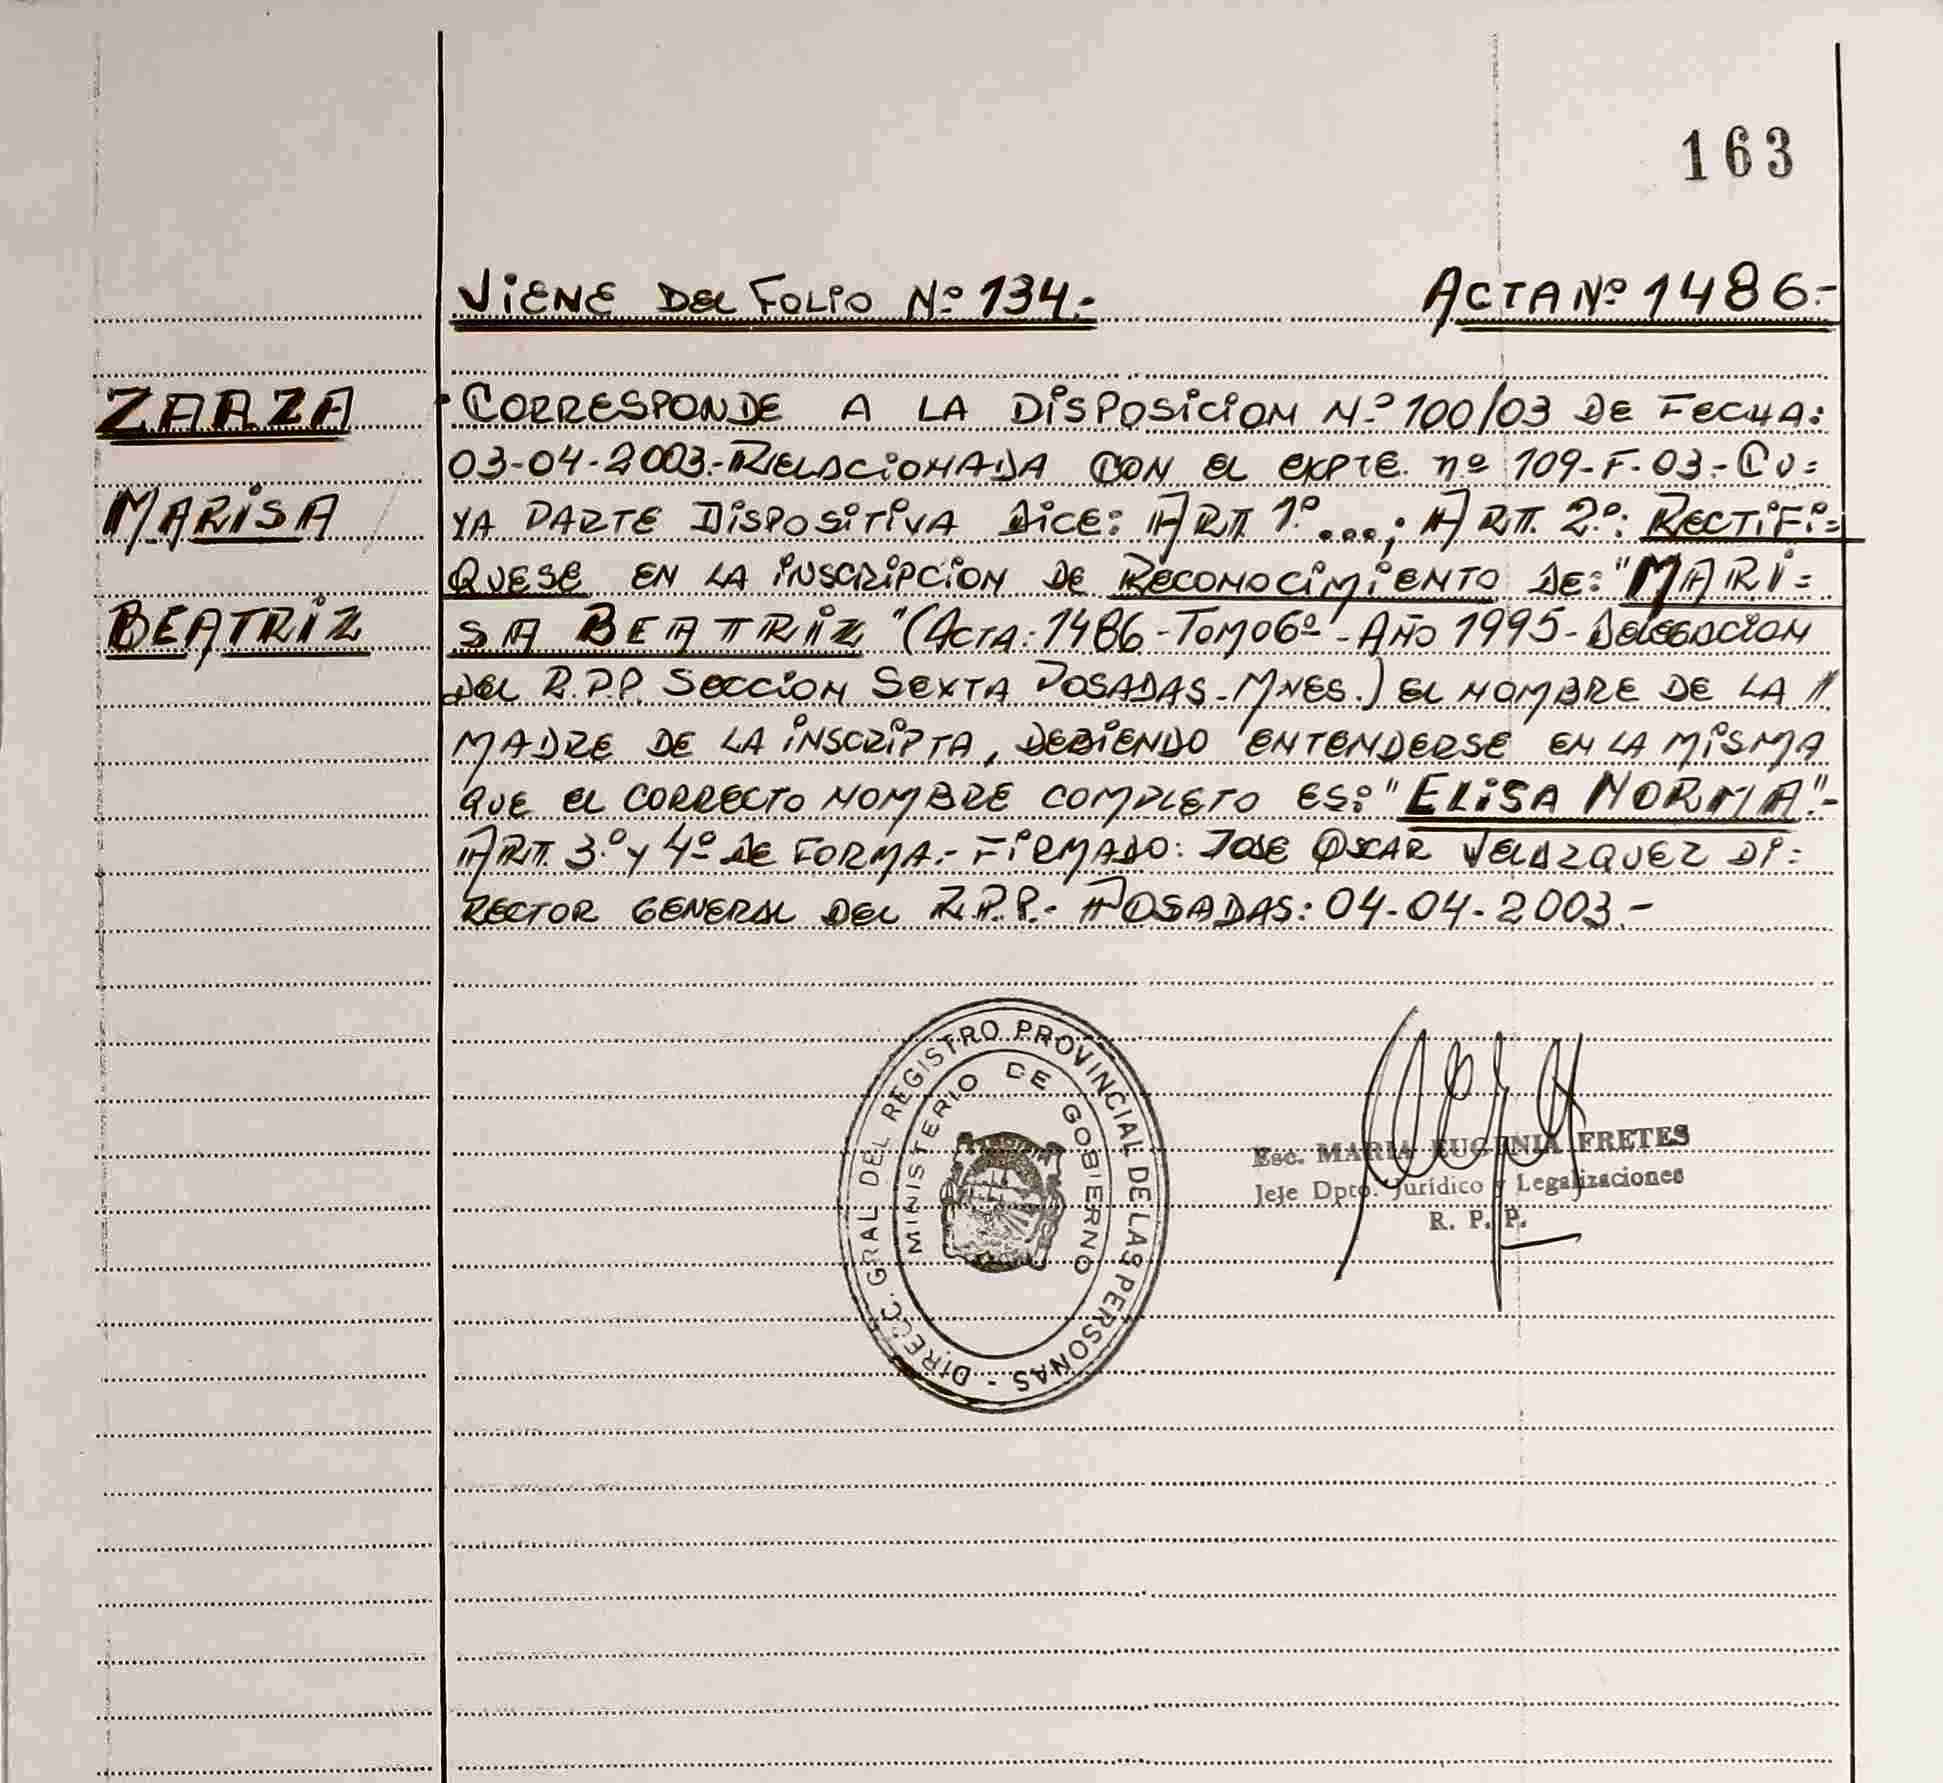 163
VIENE DEL FOLIO Nº 134.-
ACTA Nº 1486.-
ZARZA
MARISA
BEATRIZ
CORRESPONDE A LA DISPOSICION N.º 100/03 DE FECHA:
03-04-2003.-RELACIONADA CON EL EXPTE. nº 109-F-03-CU=
YA PARTE DISPOSITIVA DICE: ART. 1º...; ART. 2.º: RECTIFI=
QUESE EN LA INSCRIPCION DE RECONOCIMIENTO DE: "MARI=
SA BEATRIZ" (ACTA: 1486-TOMO 6º-AÑO 1995-DELEGACION
DEL R.P.P. SECCION SEXTA POSADAS-MNES.) EL NOMBRE DE LA "
MADRE DE LA INSCRIPTA, DEBIENDO ENTENDERSE EN LA MISMA
QUE EL CORRECTO NOMBRE COMPLETO ES: "ELISA NORMA".-
ART. 3.º Y 4º DE FORMA.- FIRMADO: JOSE OSCAR VELAZQUEZ DI=
RECTOR GENERAL DEL R.P.P.- POSADAS: 04-04-2003.-
DIRECC. GRAL DEL REGISTRO PROVINCIAL DE LAS PERSONAS -
MINISTERIO DE GOBIERNO
Esc. MARIA EUGENIA FRETES
Jefe Dpto. Jurídico y Legalizaciones
R. P. P.